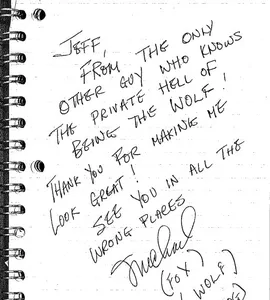 JEFF,
FROM THE ONLY
OTHER GUY WHO KNOWS
THE PRIVATE HELL OF
BEING THE WOLF!
THANK YOU FOR MAKING ME
LOOK GREAT!
SEE YOU IN ALL THE
WRONG PLACES
Michael
(FOX)
WOLF)